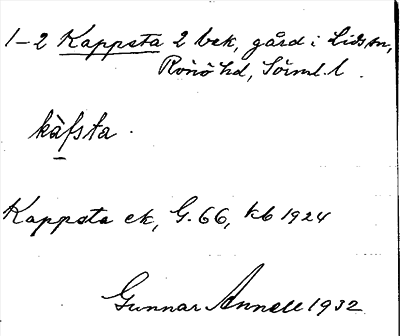 1-2 Kappsta 2 bek, gård i Lids sn,
Rönö hd, Sörml. l.
kàfsta.
Kappsta ek, G. 66, kb 1924
Gunnar Annell 1932